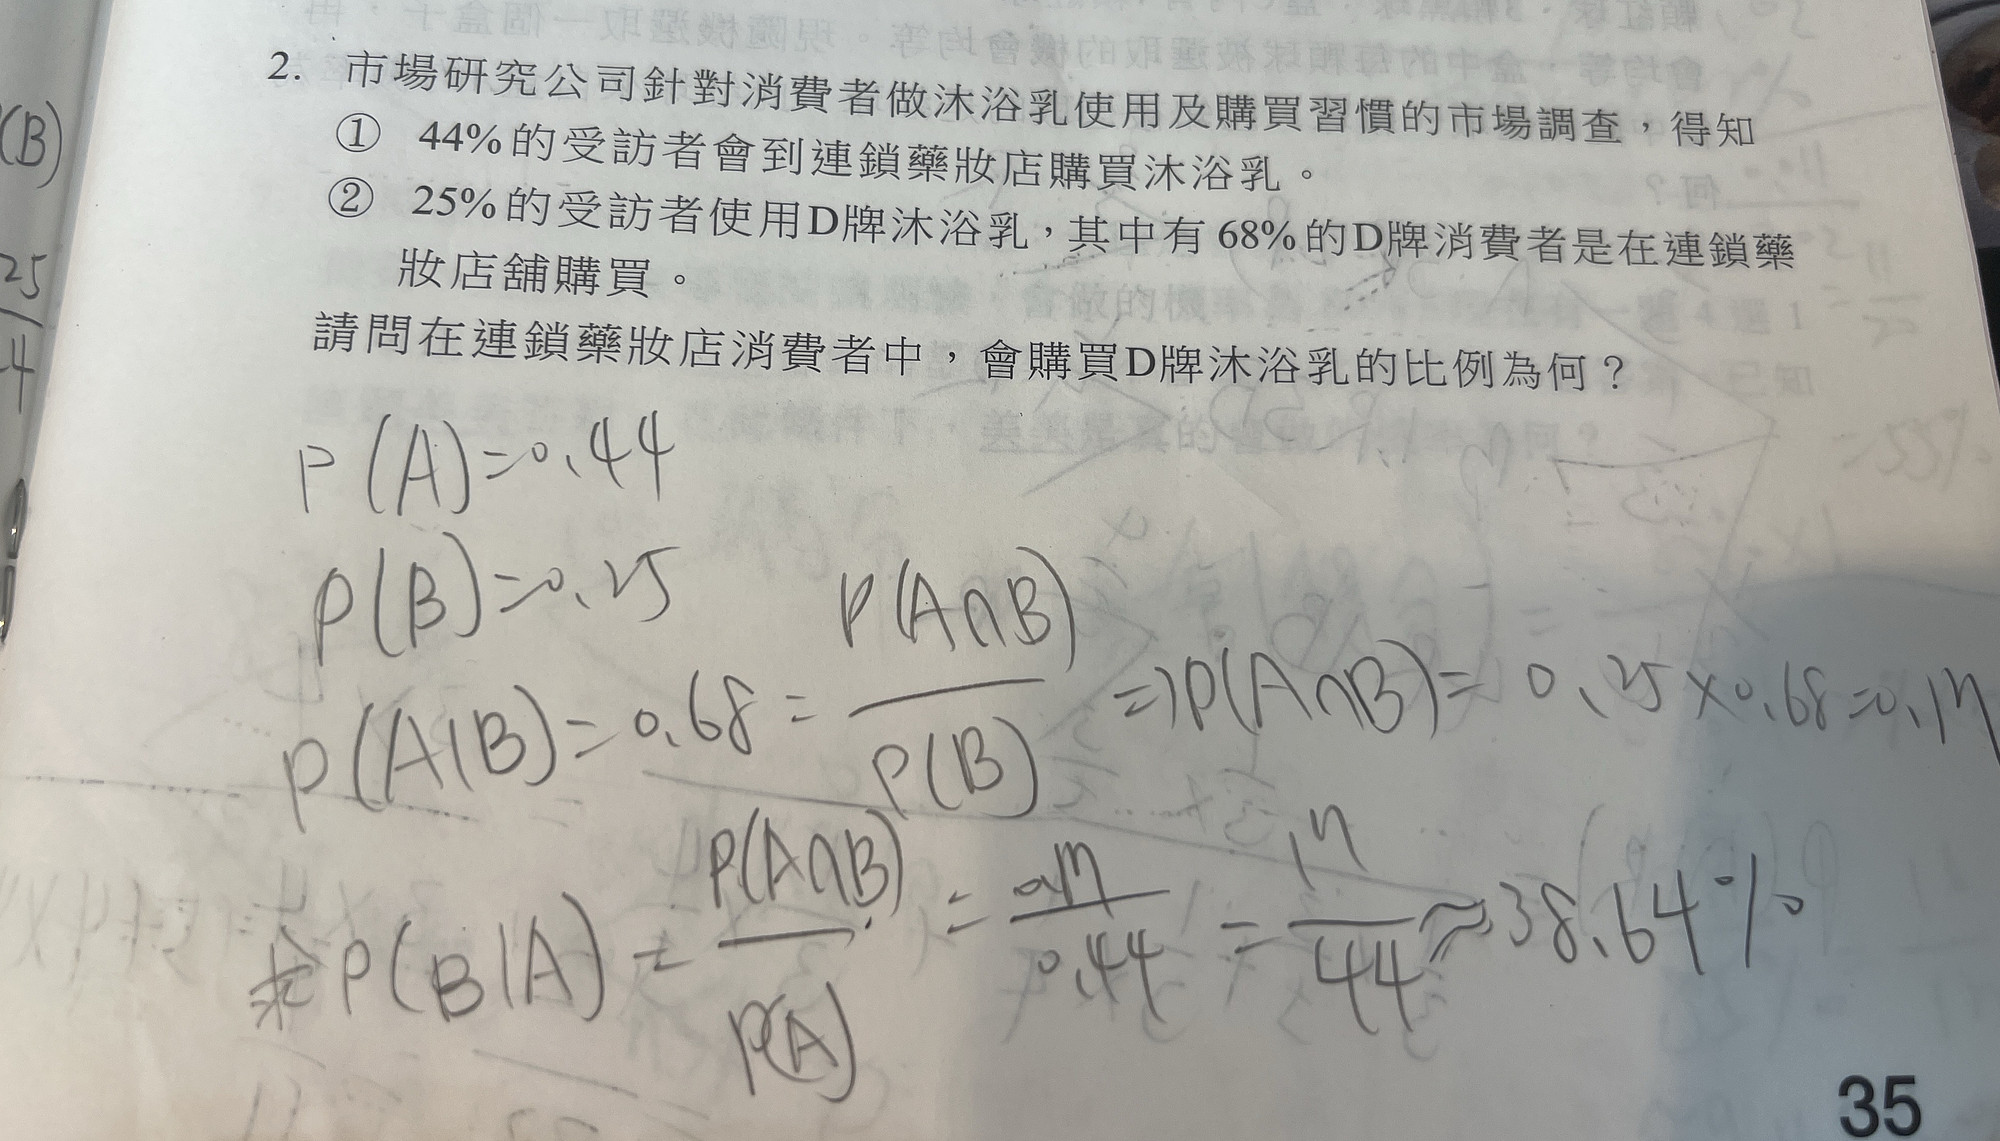 2. 市場研究公司針對消費者做沐浴乳使用及購買習慣的市場調查，得知
① 44%的受訪者會到連鎖藥妝店購買沐浴乳。
② 25%的受訪者使用D牌沐浴乳，其中有68%的D牌消費者是在連鎖藥
妝店舖購買。
請問在連鎖藥妝店消費者中，會購買D牌沐浴乳的比例為何？
P(A)=0.44
P(B)=0.25
P(A|B)=0.68=P(A∩B)/P(B) ⇒P(A∩B)=0.25×0.68=0.17
求P(B|A)=P(A∩B)/P(A)=0.17/0.44=17/44≈38.64%
35
(B)
25
4